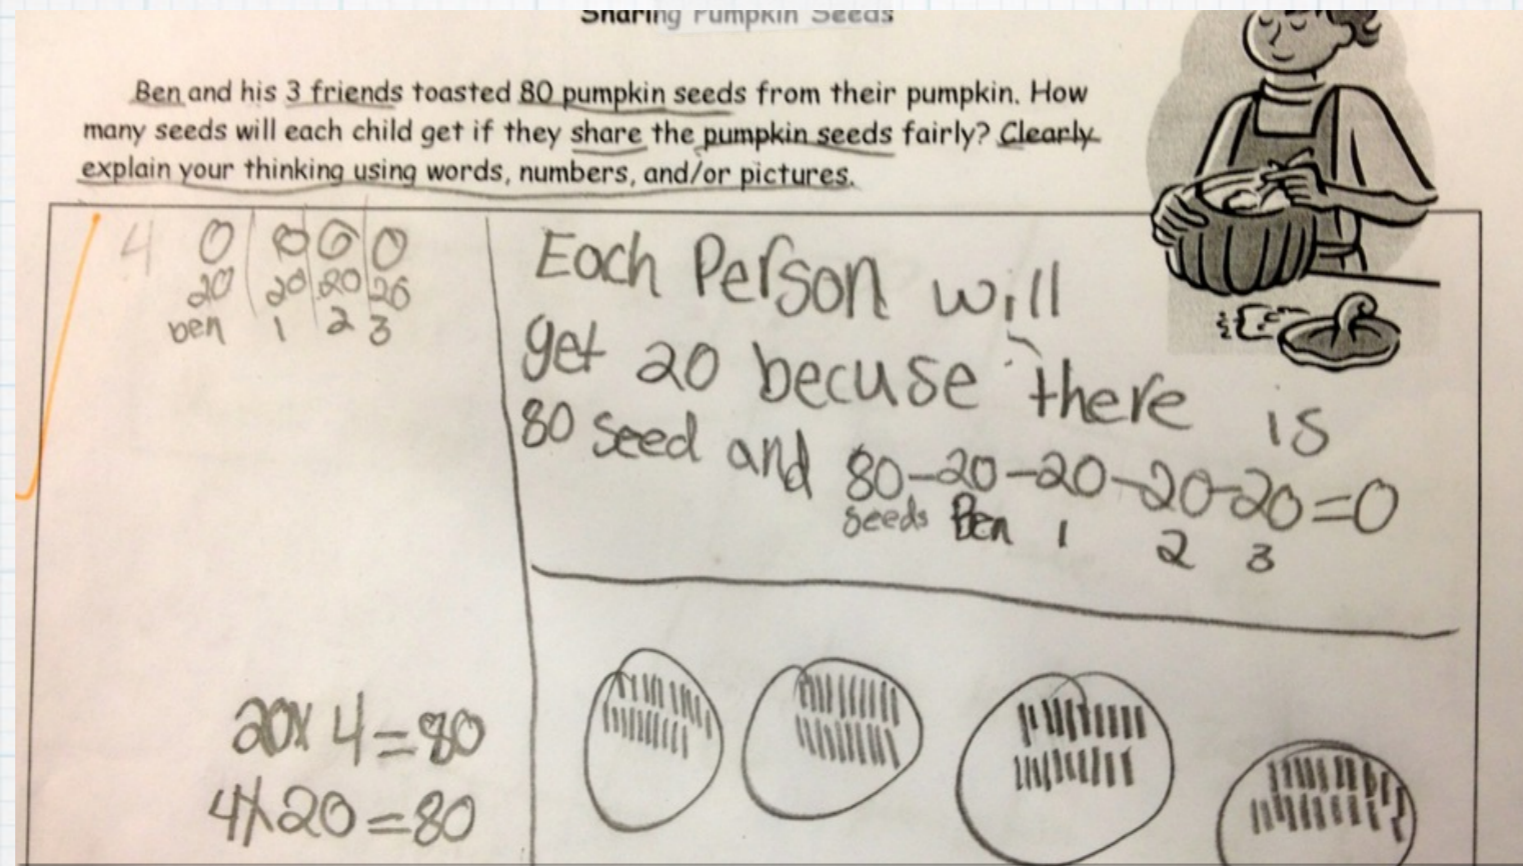 Sharing Pumpkin Seeds
Ben and his 3 friends toasted 80 pumpkin seeds from their pumpkin. How
many seeds will each child get if they share the pumpkin seeds fairly? Clearly
explain your thinking using words, numbers, and/or pictures.
4 0 0 0 0
20 20 20 20
ben 1 2 3
Each Person will
get 20 becuse there is
80 seed and 80-20-20-20-20=0
seeds Ben 1 2 3
20x4=80
4x20=80